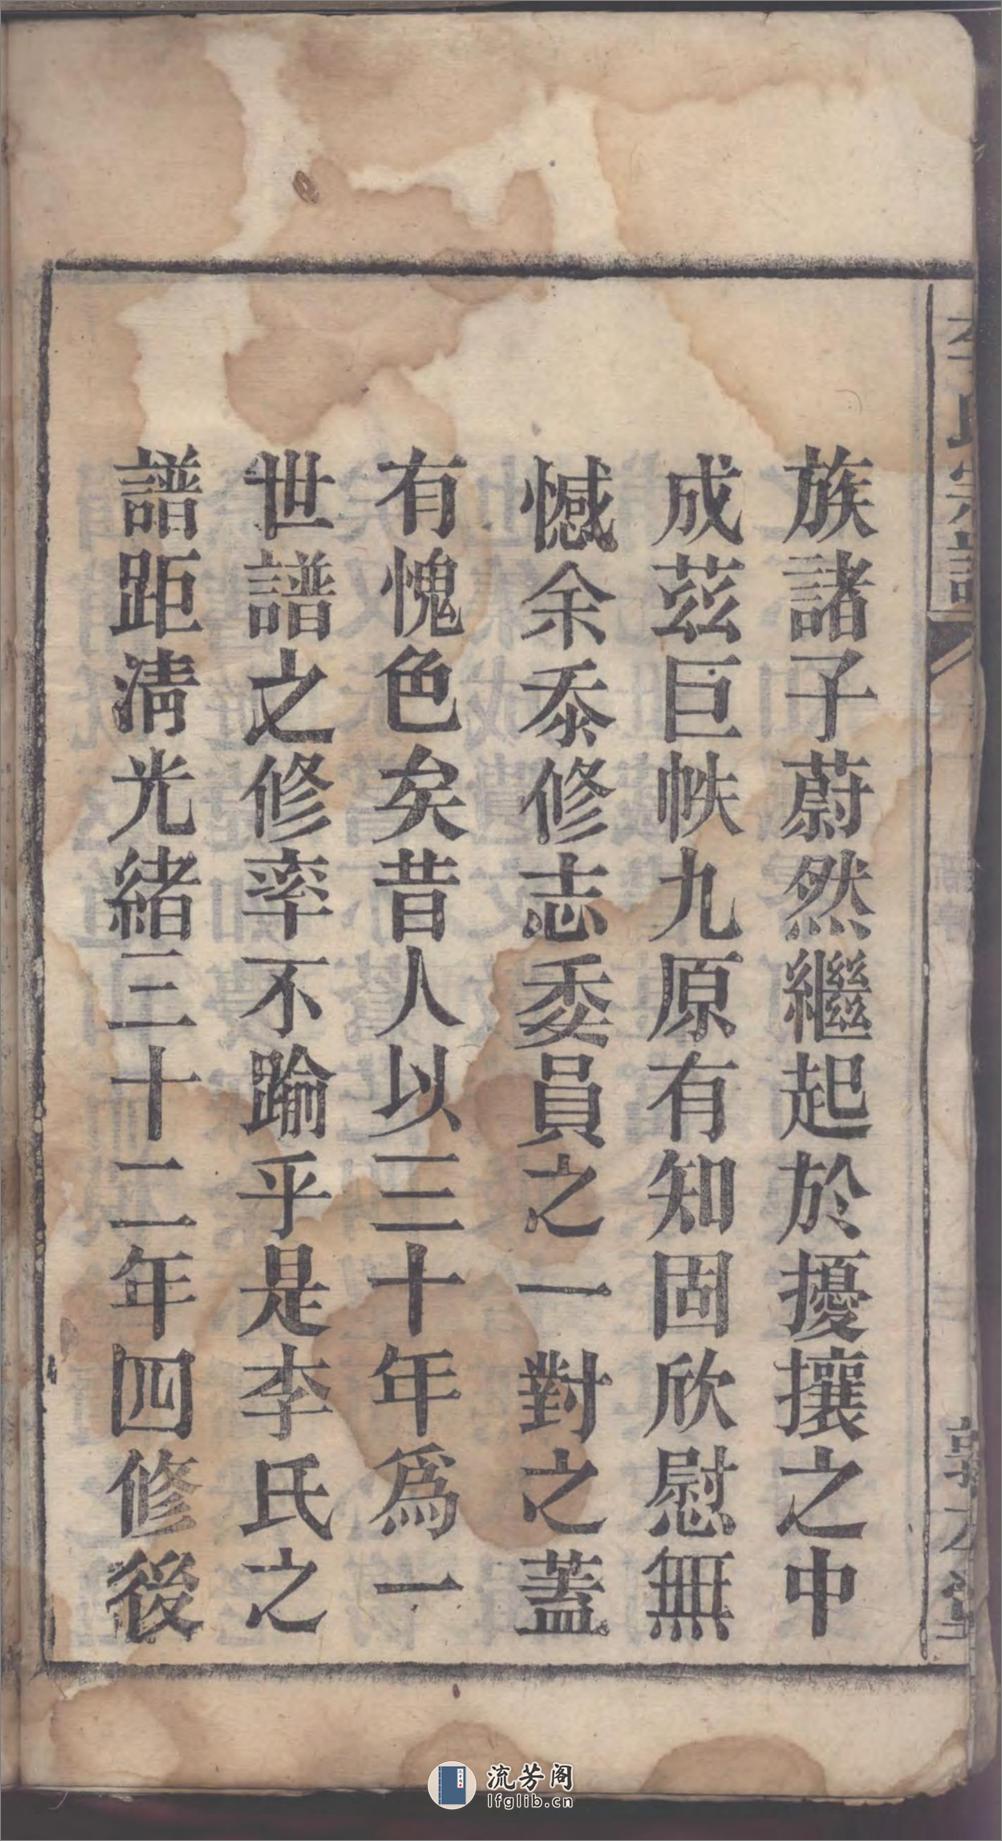 族諸子蔚然繼起於擾攘之中
成茲巨帙九原有知固欣慰無
憾余忝修志委員之一對之蓋
有愧色矣昔人以三十年爲一
世譜之修率不踰乎是李氏之
譜距淸光緒三十二年四修後
李氏宗譜
流芳阁
lfglib.cn